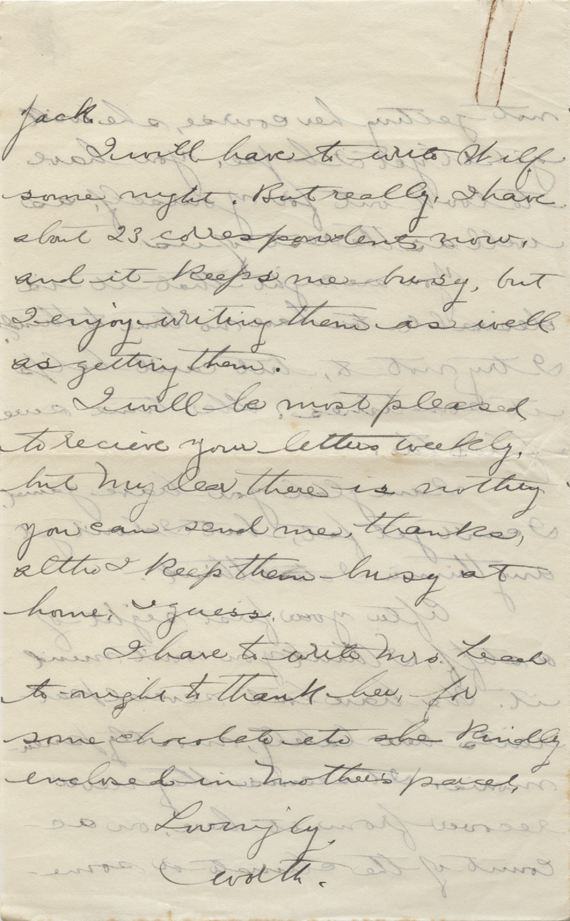 Jack.
I will have to write Wilf
some night. But really, I have
about 23 correspondents now,
and it keeps me busy, but
I enjoy writing them as well
as getting them.
I will be most pleased
to recieve your letters weekly,
but My Dear there is nothing
you can send me, thanks,
altho I keep them busy at
home, I guess.
I have to write Mrs.
to-night to thank her for
some chocolate etc she kindly
enclosed in Mother's parcel.
Lovingly,
Worth.